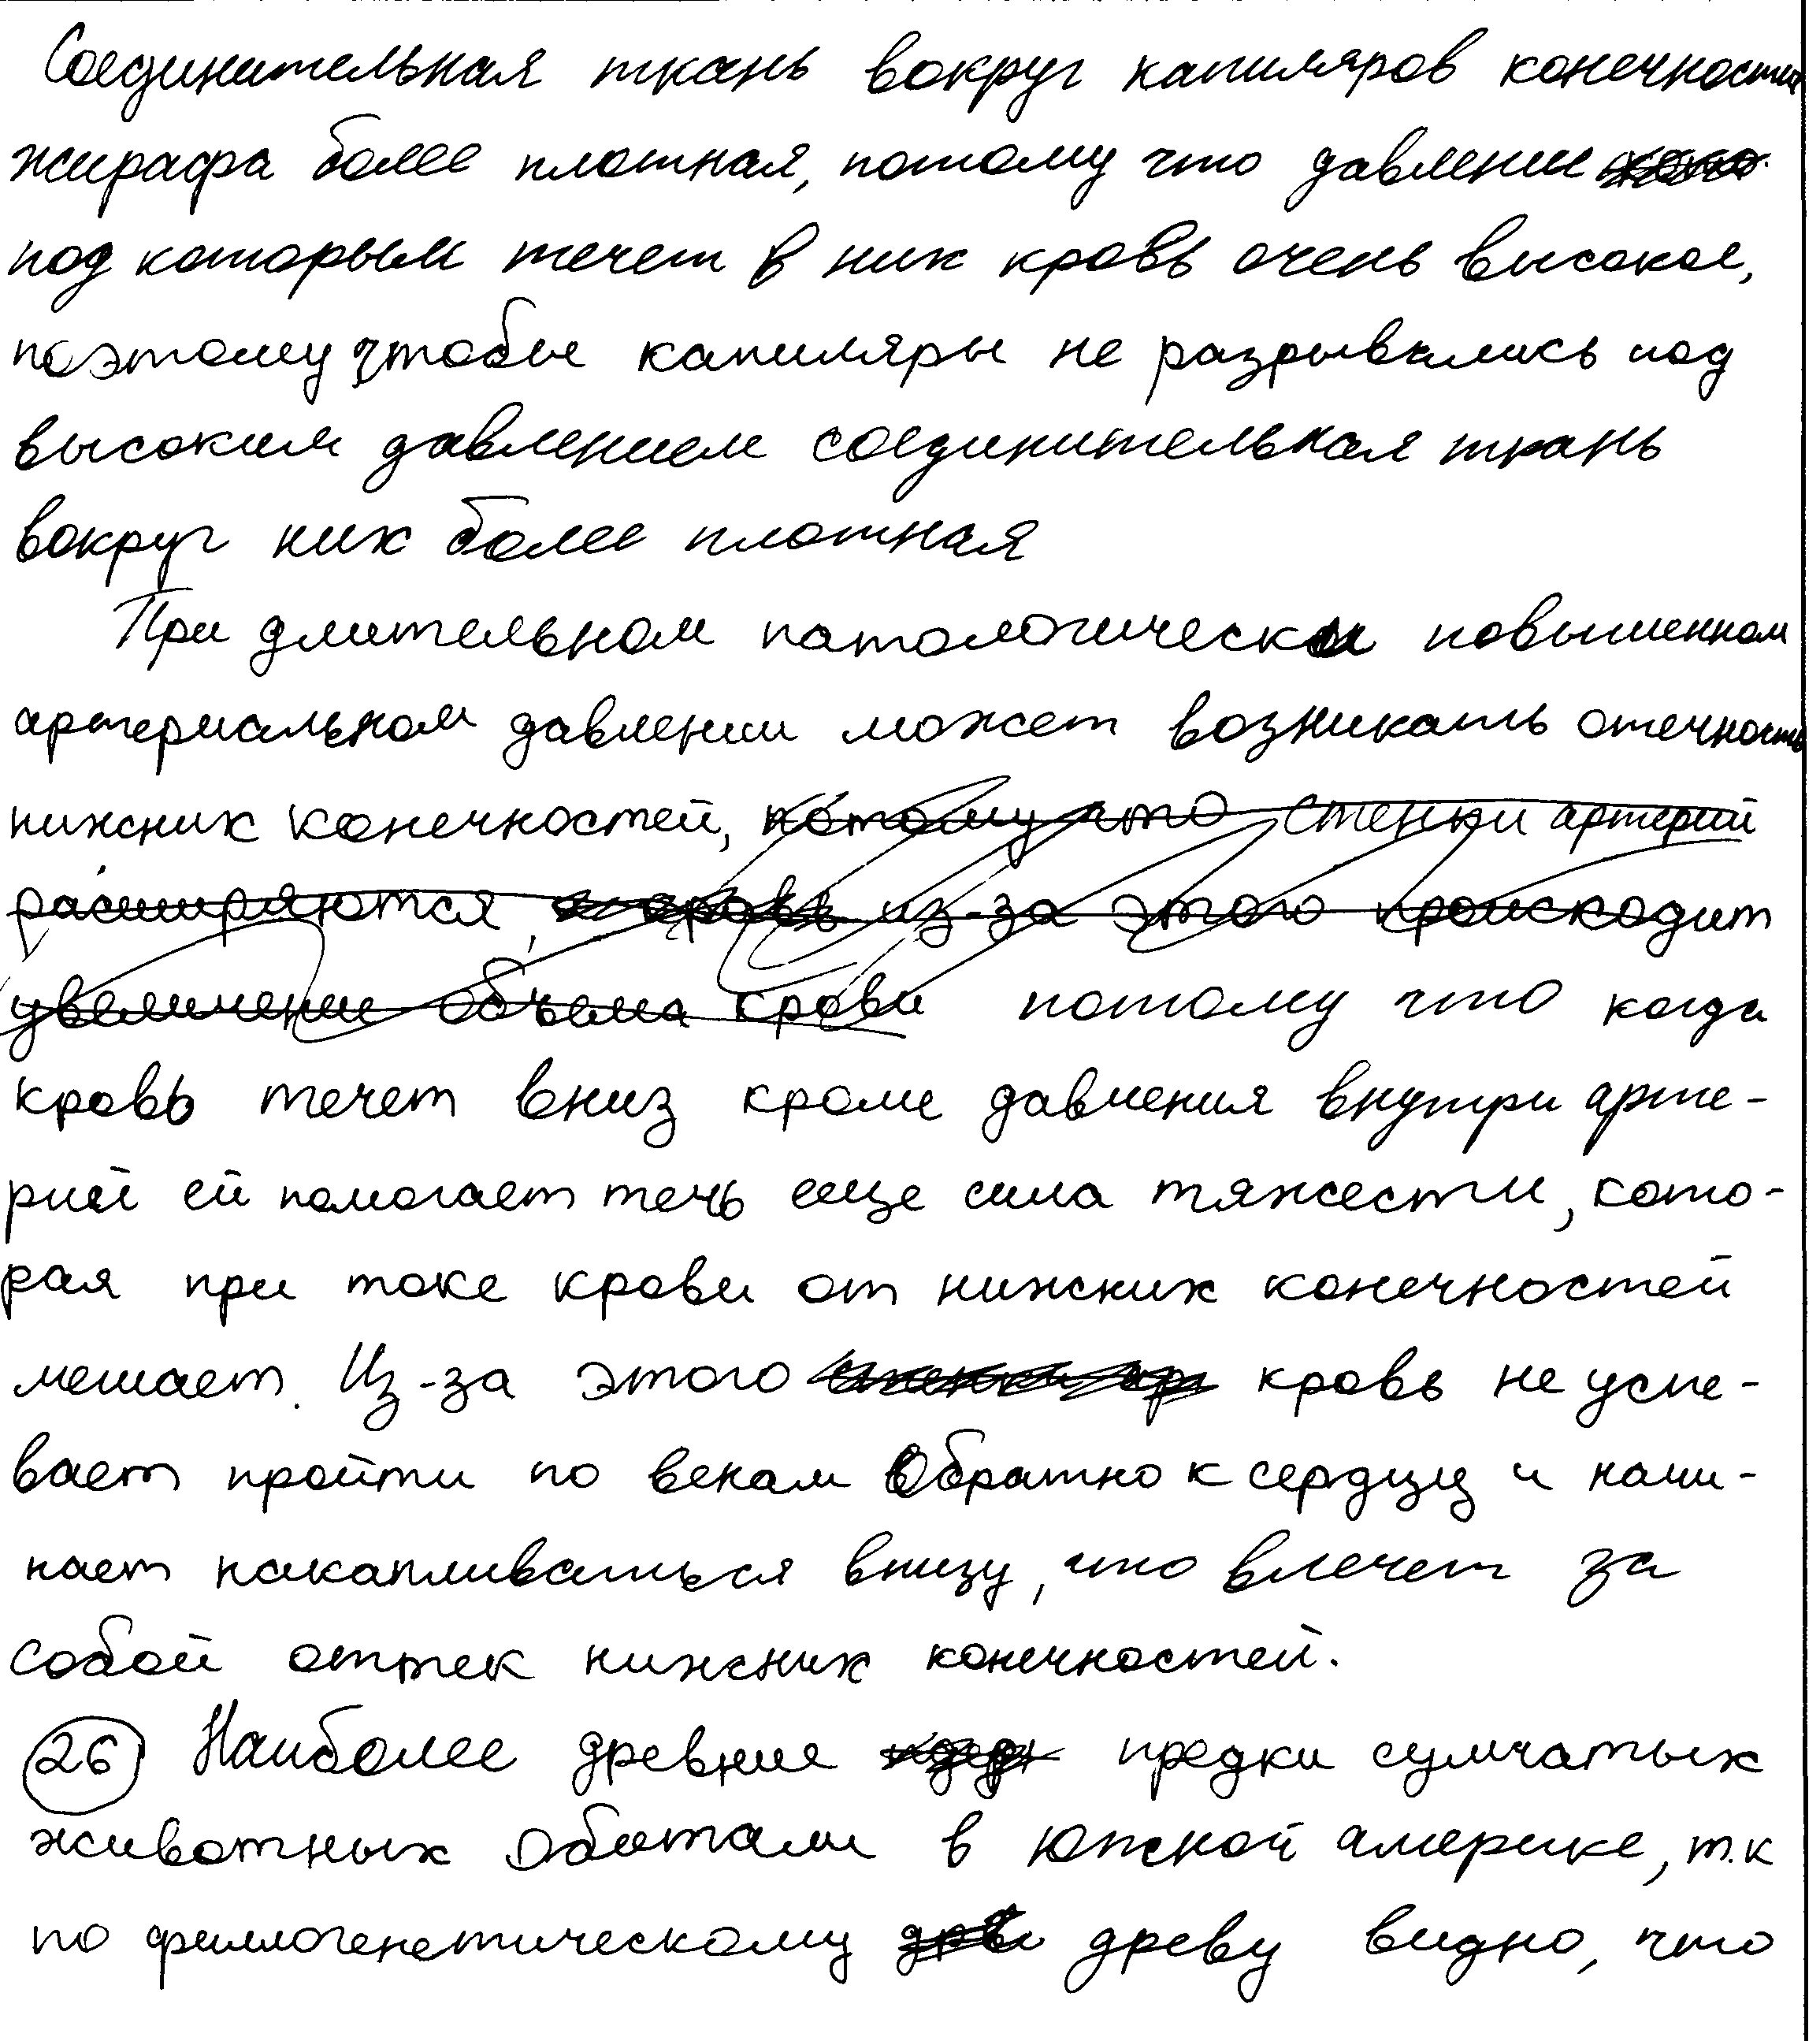 Соединительная ткань вокруг капиляров конечностей
жирафа более плотная, потому что давление
под которым течет в них кровь очень высокое,
поэтому чтобы капиляры не разрывались под
высоким давлением соединительная ткань
вокруг них более плотная
При длительном патологически повышенном
артериальном давлении может возникать отечность
нижних конечностей, потому что стенки артерий
расширяются, и кровь из-за этого происходит
увеличение объема крови потому что когда
кровь течет вниз кроме давления внутри арте-
рий ей помогает течь еще сила тяжести, кото-
рая при токе крови от нижних конечностей
мешает. Из-за этого кровь не успе-
вает пройти по венам обратно к сердцу и начи-
нает накапливаться внизу, что влечет за
собой оттек нижних конечностей.
26 Наиболее древние предки сумчатых
животных обитали в южной америке, т.к
по филлогенетическому древу видно, что